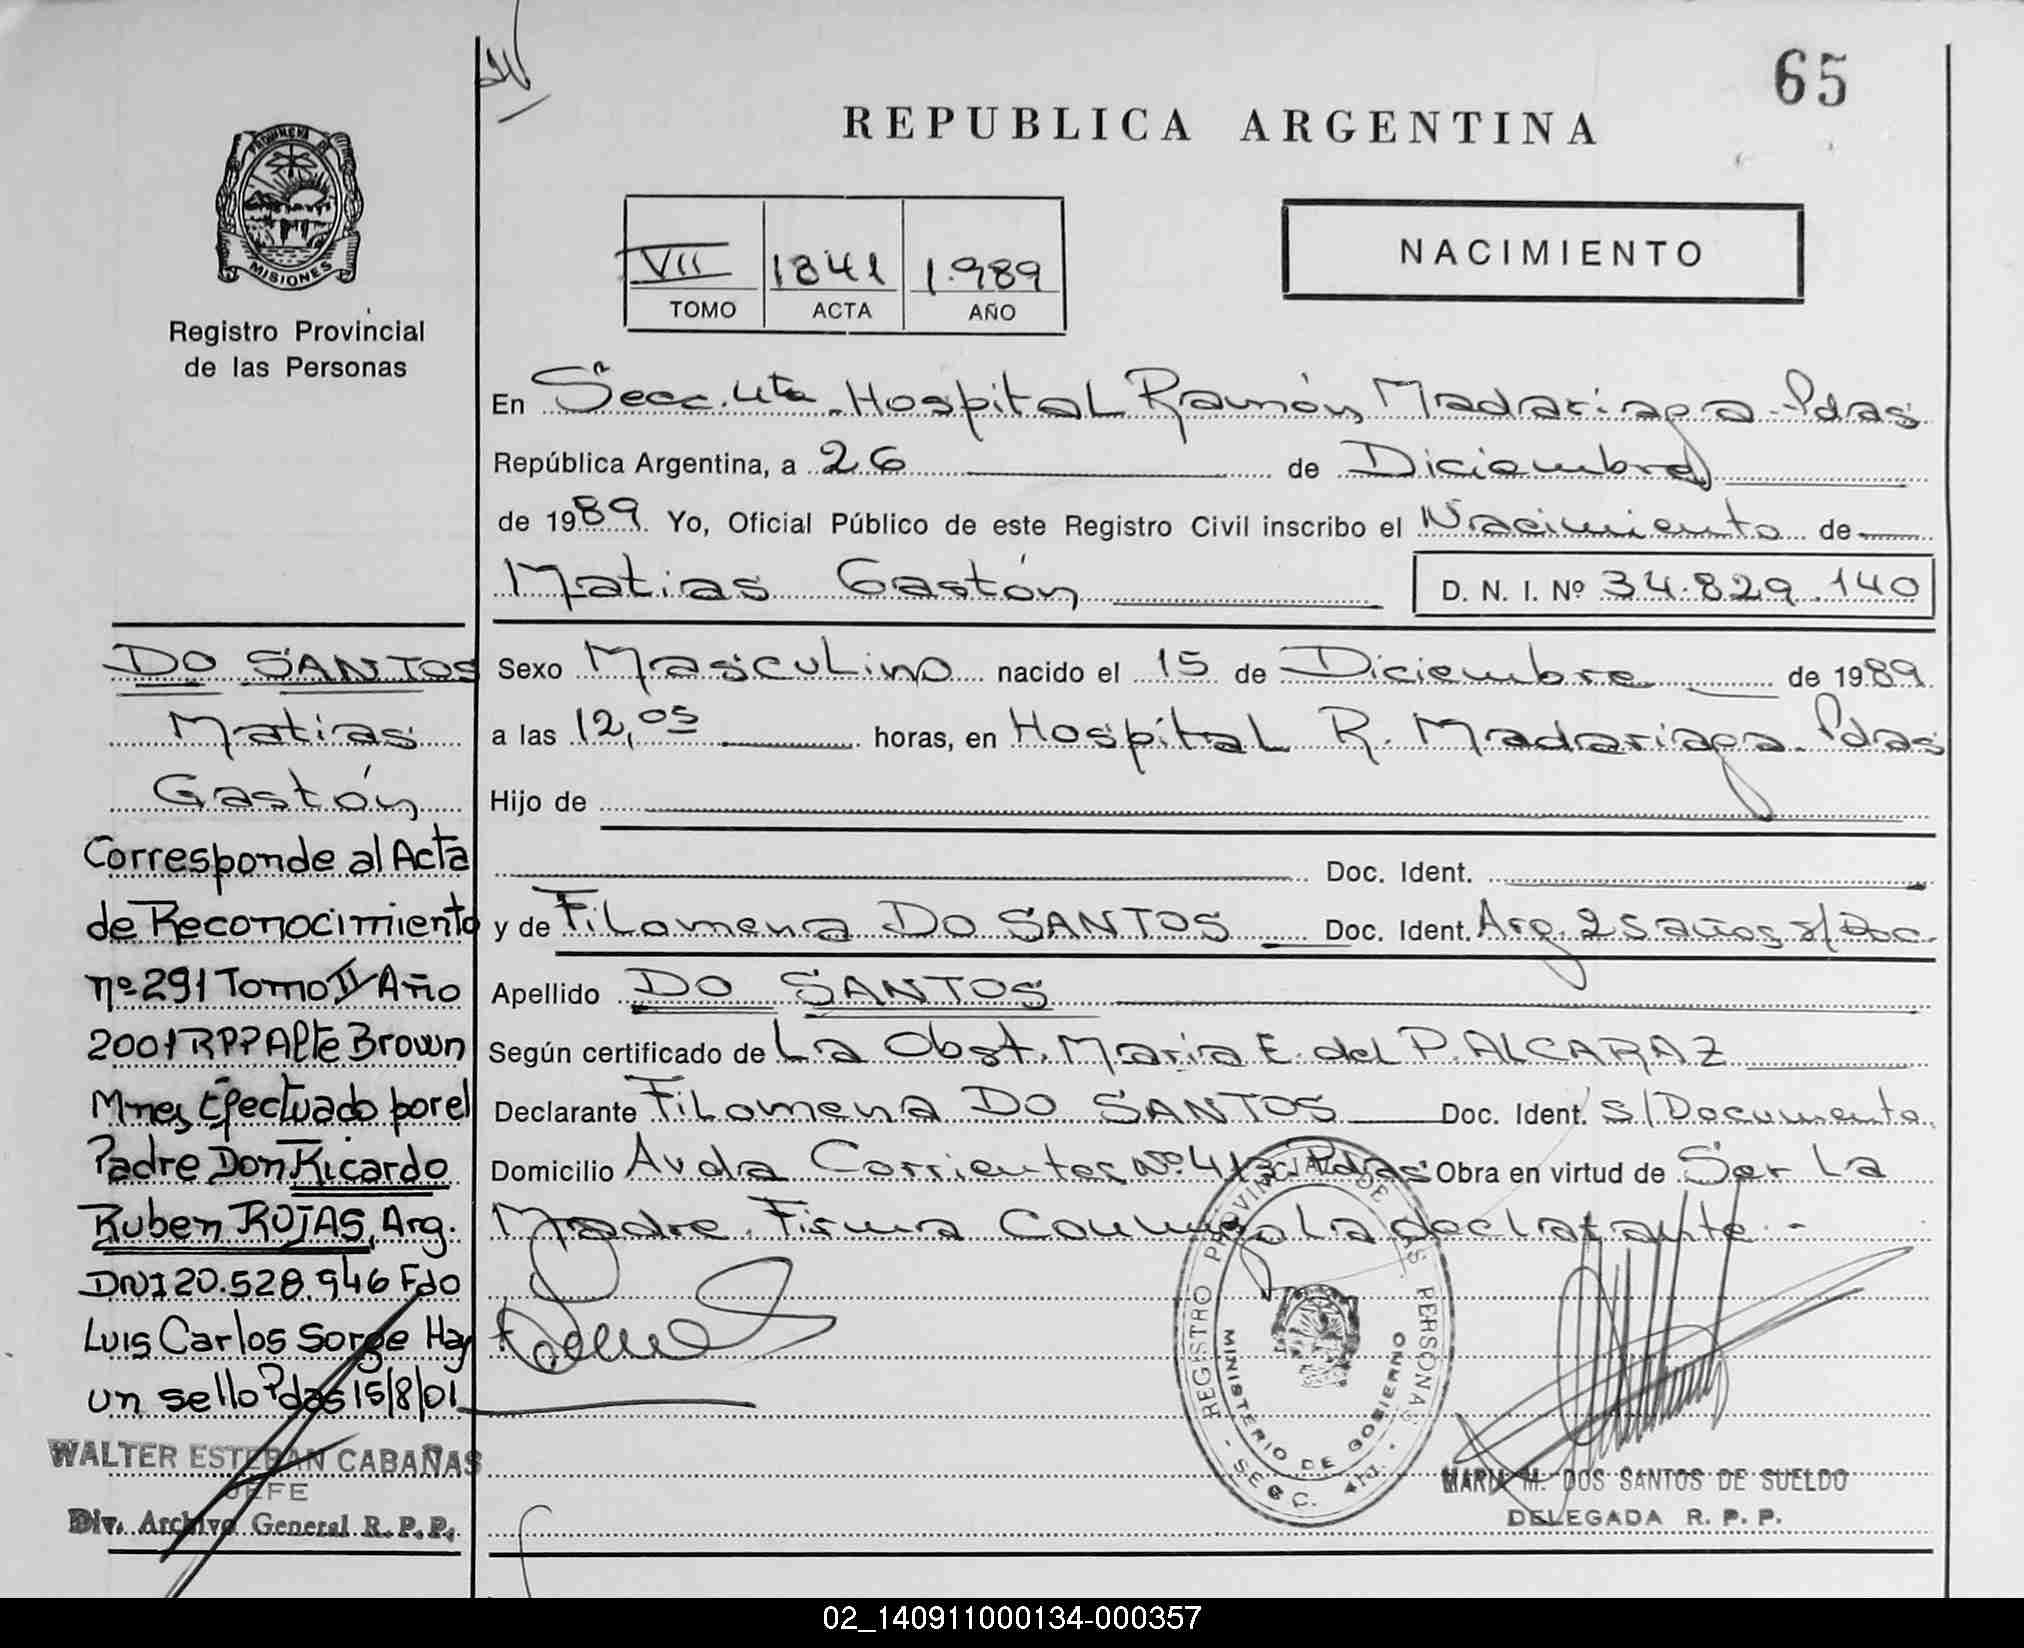 65
REPUBLICA ARGENTINA
PROVINCIA DE
MISIONES
Registro Provincial
de las Personas
VII 1841 1.989
TOMO ACTA AÑO
NACIMIENTO
En Secc. 4ta. Hospital Ramón Madariaga - Pdas
República Argentina, a 26 de Diciembre
de 1989. Yo, Oficial Público de este Registro Civil inscribo el Nacimiento de
Matias Gastón D. N. I. Nº 34.829.140
Sexo Masculino nacido el 15 de Diciembre de 1989
a las 12,05 horas, en Hospital R. Madariaga - Pdas
Hijo de
Doc. Ident.
y de Filomena DO SANTOS Doc. Ident. Arg. 25 años s/Doc.
Apellido DO SANTOS
Según certificado de La Obst. Maria E. del P. ALCARAZ
Declarante Filomena DO SANTOS Doc. Ident. s/Documento
Domicilio Avda Corrientes Nº 413 Pdas Obra en virtud de Ser La
Madre. Firma Conmigo La declarante.-
DO SANTOS
Matias
Gastón
Corresponde al Acta
de Reconocimiento
nº 291 Tomo II Año
2001 RPP Alte Brown
Mnes, Efectuado por el
Padre Don Ricardo
Ruben ROJAS, Arg.
DNI 20.528.946 Fdo
Luis Carlos Sorge Hay
un sello Pdas 15/8/01
WALTER ESTEBAN CABAÑAS
JEFE
Div. Archivo General R. P. P.
REGISTRO PROVINCIAL DE LAS PERSONAS
MINISTERIO DE GOBIERNO
- SECC. 4ta. -
MARIA M. DOS SANTOS DE SUELDO
DELEGADA R. P. P.
02_140911000134-000357